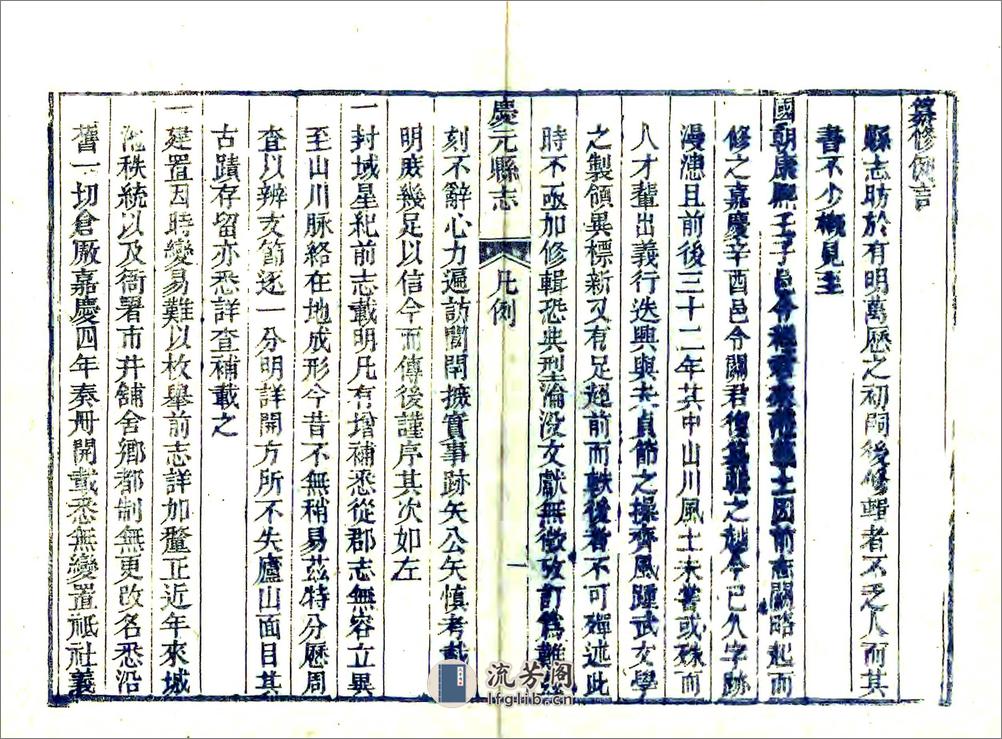 纂修例言
縣志昉於有明萬歷之初嗣後修輯者不乏人而其
書不少概見至
國朝康熙壬子邑令程君 因前志闕略起而
修之嘉慶辛酉邑令關君復纂輯之越今已久字跡
漫漶且前後三十二年其中山川風土未嘗或殊而
人才輩出義行迭興與夫貞節之操齊風踵武文學
之製領異標新又有足超前而軼後者不可殫述此
時不亟加修輯恐典型淪没文獻無徵攷訂為難
慶元縣志
凡例
一
刻不辭心力遍訪閭閈摭實事跡矣公矣慎考載
明晐幾足以信今而傳後謹序其次如左
一封域星紀前志載明凡有增補悉從郡志無容立異
至山川脈絡在地成形今昔不無稍易茲特分歷周
查以辨支節逐一分明詳開方所不失廬山面目其
古蹟存留亦悉詳查補載之
一建置因時變易難以枚舉前志詳加釐正近年來城
池秩統以及衙署市井鋪舍鄉都制無更改名悉沿
舊一切倉廒嘉慶四年奏冊開載悉無變置祗社義
流芳阁
lfglib.cn